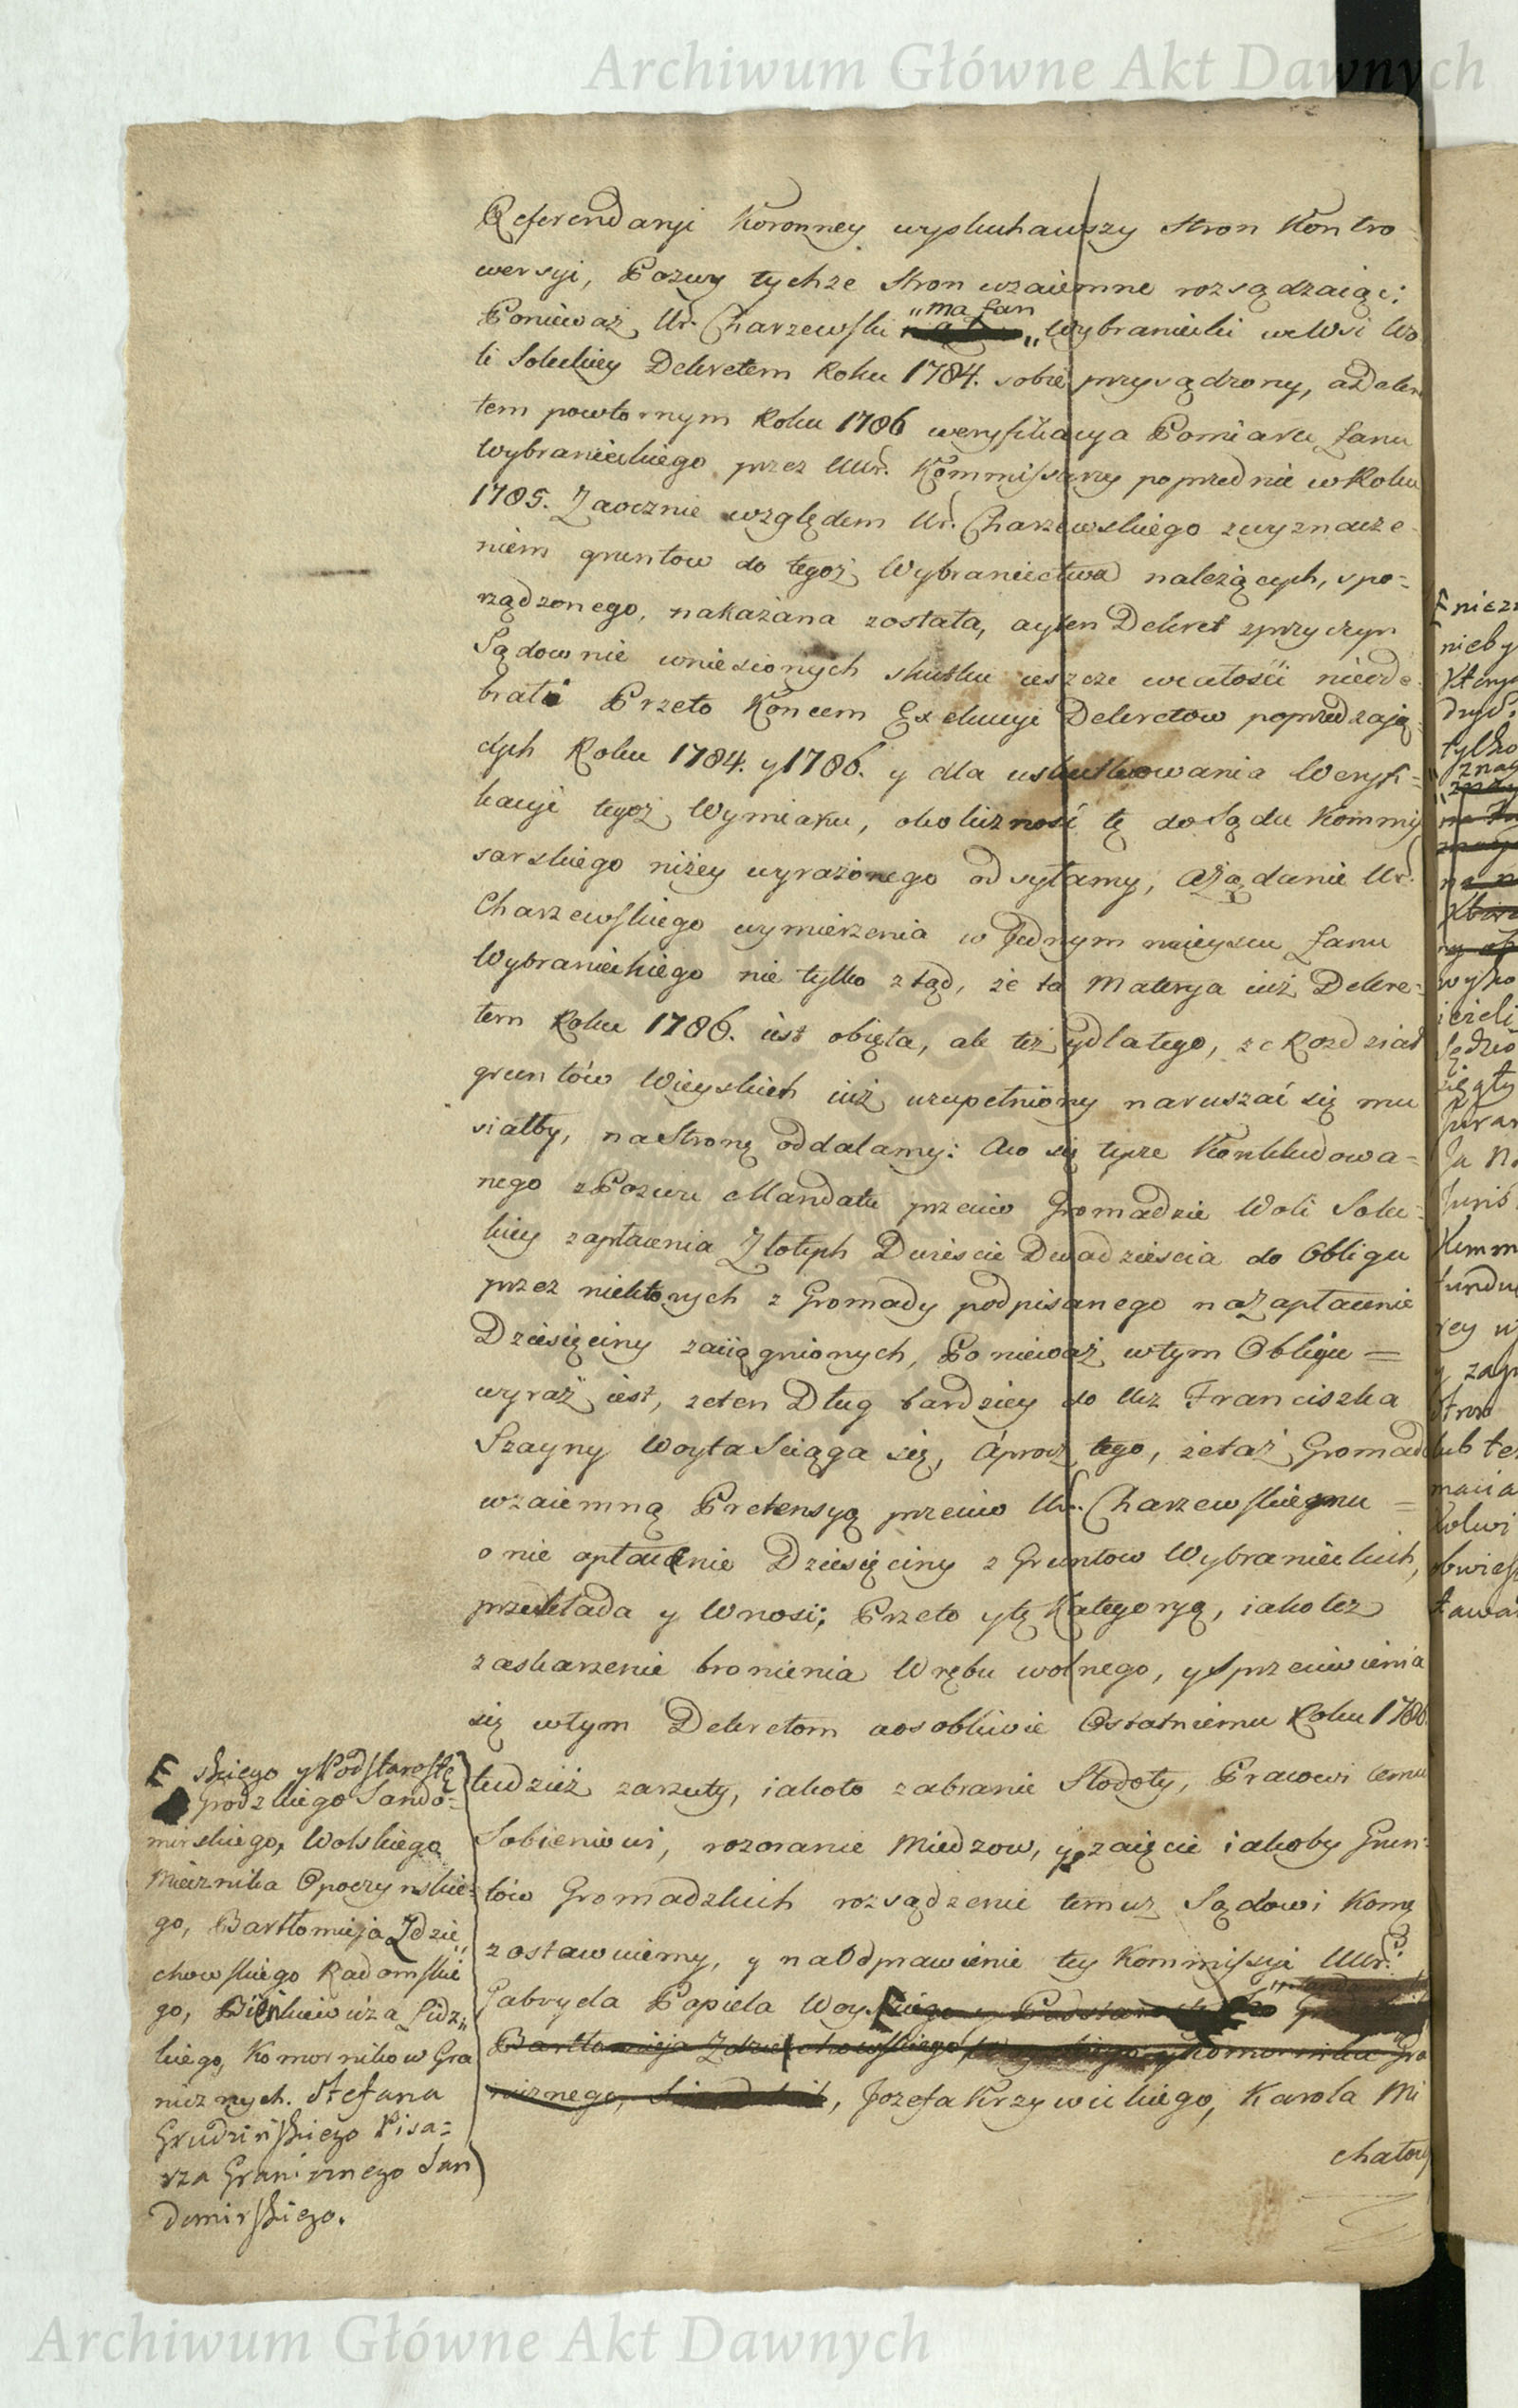 Archiwum Główne Akt Dawnych
Referendaryi Koronney wysłuchawszy Stron Kontro-
wersyi, Pozwy tychze Stron wzaiemne rozsądzaiąc:
„ma Łan
Ponieważ Ur. Charzewski „ Wybraniecki we Wsi Wo
li Soleckiey Dekretem Roku 1784. sobie przysądzony, a Dekre
tem powtornym Roku 1786 weryfikacya Pomiaru Łanu
Wybranieckiego przez UUr. Kommissarzy poprzednie w Roku
1785. Zaocznie względem Ur. Charzewskiego z wyznacze-
niem gruntow do tegoż Wybraniectwa należących, spo=
rządzonego, nakazana została, a y ten Dekret z przyczyn
Sądownie wniesionych skutku ieszcze w całości nieode-
brał Przeto Koncem Exekucyi Dekretow poprzedzaią-
cych Roku 1784. y 1786. y dla uskutkowania Weryfi=
kacyi tegoż Wymiaru, okoliczność tę do Sądu Kommis
sarskiego niżey wyrażonego odsyłamy, a Żądanie Ur.
Charzewskiego wymierzenia w Jednym mieyscu Łanu
Wybranieckiego nie tylko z tąd, że ta Materya iuż Dekre=
tem Roku 1786. iest obięta, ale też y dla tego, że Rozdział
gruntów Wieyskich iuż uzupełniony naruszać się mu
siałby, na Stronę oddalamy: Aco się tycze Konkludowa=
nego z Pozwu Mandatu przeciw Gromadzie Woli Solec=
kiey zapłacenia Złotych Dwieście Dwadzieścia do Obligu
przez niektorych z Gromady podpisanego na Zapłacenie
Dziesięciny zaciągnionych, Ponieważ w tym Obligu =
wyraź iest, że ten Dług bardziey do Ucz Franciszka
Szayny Woyta Sciąga się, Aprocz tego, że taż Gromad
wzaiemną Pretensyą przeciw Ur. Charzewskiemu =
o nie opłacenie Dziesięciny z Gruntow Wybranieckich,
przekłada y Wnosi; Przeto y tę Kategoryą, iako też
zaskarzenie bronienia Wrębu wolnego, y sprzeciwienia
się w tym Dekretom a osobliwie Ostatniemu Roku 1786.
tudzież zarzuty, iakoto zabranie Stodoły, Pracowi temu
Sobieniowi, rozoranie Miedzow, y zaięcie iakoby Grun=
tów Gromadzkich rozsądzenie temuż Sądowi Komm
zostawuiemy, y na Odprawienie tey Kommissyi UUr.
Gabryela Popiela Woys[kiego y Podstar
Bartłomieja Zdziechowskiego y Komornika Gra
nicznego, , Jozefa Krzywickiego, Karola Mi
chałow
E skiego y Podstarostę
Grodzkiego Sando=
mirskiego, Wolskiego
Miecznika Opoczynskie=
go, Bartłomieja Zdzie„
chowskiego Radomskie
go, Bieńkiewicza Lidz„
kiego, Komornikow Gra
nicznych. Stefana
Grudzińskiego Pisa=
rza Granicznego San
domirskiego.
nieby
tylko
znay
wyko
ieżeli
Sędzio
Juris
y zap
lub te
Archiwum Główne Akt Dawnych